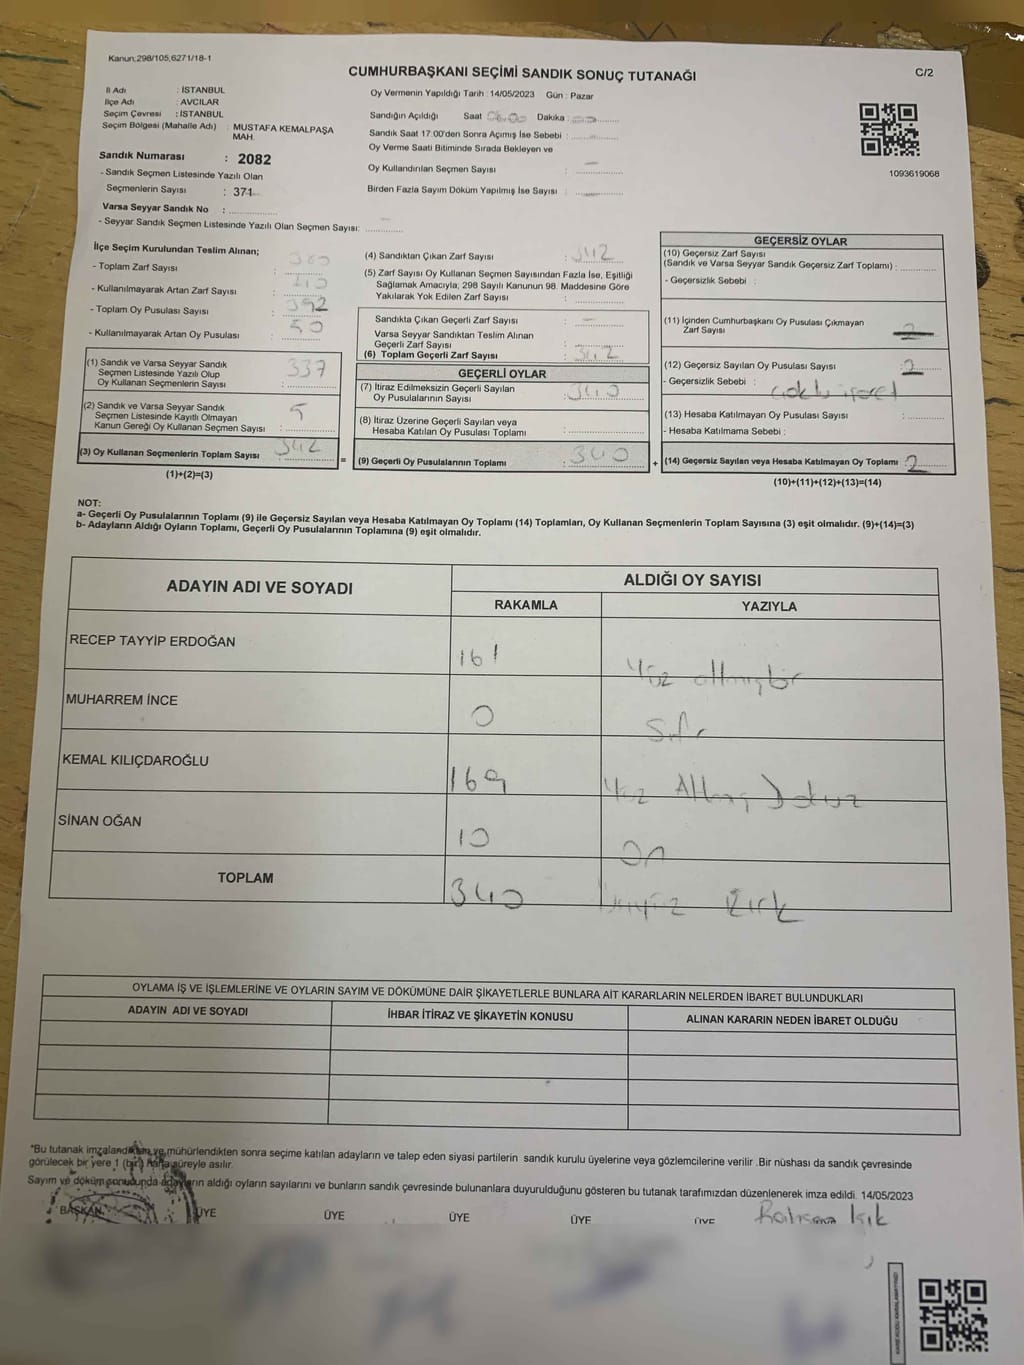 Kanun;298/105;6271/18-1
CUMHURBAŞKANI SEÇİMİ SANDIK SONUÇ TUTANAĞI
C/2
İl Adı : İSTANBUL
İlçe Adı : AVCILAR
Seçim Çevresi : İSTANBUL
Seçim Bölgesi (Mahalle Adı) : MUSTAFA KEMALPAŞA MAH.
Sandık Numarası : 2082
- Sandık Seçmen Listesinde Yazılı Olan
Seçmenlerin Sayısı : 371
Varsa Seyyar Sandık No :
- Seyyar Sandık Seçmen Listesinde Yazılı Olan Seçmen Sayısı:
Oy Vermenin Yapıldığı Tarih : 14/05/2023 Gün : Pazar
Sandığın Açıldığı Saat Dakika :
Sandık Saat 17:00'den Sonra Açımış İse Sebebi :
Oy Verme Saati Bitiminde Sırada Bekleyen ve
Oy Kullandırılan Seçmen Sayısı :
Birden Fazla Sayım Döküm Yapılmış İse Sayısı :
1093619068
İlçe Seçim Kurulundan Teslim Alınan;
- Toplam Zarf Sayısı :
- Kullanılmayarak Artan Zarf Sayısı :
- Toplam Oy Pusulası Sayısı : 392
- Kullanılmayarak Artan Oy Pusulası : 50
(1) Sandık ve Varsa Seyyar Sandık
Seçmen Listesinde Yazılı Olup
Oy Kullanan Seçmenlerin Sayısı : 337
(2) Sandık ve Varsa Seyyar Sandık
Seçmen Listesinde Kayıtlı Olmayan
Kanun Gereği Oy Kullanan Seçmen Sayısı : 5
(3) Oy Kullanan Seçmenlerin Toplam Sayısı : 342
(1)+(2)=(3)
(4) Sandıktan Çıkan Zarf Sayısı : 342
(5) Zarf Sayısı Oy Kullanan Seçmen Sayısından Fazla İse, Eşitliği
Sağlamak Amacıyla; 298 Sayılı Kanunun 98. Maddesine Göre
Yakılarak Yok Edilen Zarf Sayısı :
Sandıkta Çıkan Geçerli Zarf Sayısı : -
Varsa Seyyar Sandıktan Teslim Alınan
Geçerli Zarf Sayısı :
(6) Toplam Geçerli Zarf Sayısı : 342
GEÇERLİ OYLAR
(7) İtiraz Edilmeksizin Geçerli Sayılan
Oy Pusulalarının Sayısı : 340
(8) İtiraz Üzerine Geçerli Sayılan veya
Hesaba Katılan Oy Pusulası Toplamı :
= (9) Geçerli Oy Pusulalarının Toplamı : 340
GEÇERSİZ OYLAR
(10) Geçersiz Zarf Sayısı
(Sandık ve Varsa Seyyar Sandık Geçersiz Zarf Toplamı) :
- Geçersizlik Sebebi :
(11) İçinden Cumhurbaşkanı Oy Pusulası Çıkmayan
Zarf Sayısı :
(12) Geçersiz Sayılan Oy Pusulası Sayısı : 2
- Geçersizlik Sebebi :
(13) Hesaba Katılmayan Oy Pusulası Sayısı :
- Hesaba Katılmama Sebebi :
+ (14) Geçersiz Sayılan veya Hesaba Katılmayan Oy Toplamı : 2
(10)+(11)+(12)+(13)=(14)
NOT:
a- Geçerli Oy Pusulalarının Toplamı (9) ile Geçersiz Sayılan veya Hesaba Katılmayan Oy Toplamı (14) Toplamları, Oy Kullanan Seçmenlerin Toplam Sayısına (3) eşit olmalıdır. (9)+(14)=(3)
b- Adayların Aldığı Oyların Toplamı, Geçerli Oy Pusulalarının Toplamına (9) eşit olmalıdır.
ADAYIN ADI VE SOYADI
ALDIĞI OY SAYISI
RAKAMLA YAZIYLA
RECEP TAYYİP ERDOĞAN 161 Yüz altmışbir
MUHARREM İNCE 0 Sıfır
KEMAL KILIÇDAROĞLU 169 Yüz Altmış Dokuz
SİNAN OĞAN 10 On
TOPLAM 340 Üçyüz Kırk
OYLAMA İŞ VE İŞLEMLERİNE VE OYLARIN SAYIM VE DÖKÜMÜNE DAİR ŞİKAYETLERLE BUNLARA AİT KARARLARIN NELERDEN İBARET BULUNDUKLARI
ADAYIN ADI VE SOYADI İHBAR İTİRAZ VE ŞİKAYETİN KONUSU ALINAN KARARIN NEDEN İBARET OLDUĞU
*Bu tutanak imzalandıktan ve mühürlendikten sonra seçime katılan adayların ve talep eden siyasi partilerin sandık kurulu üyelerine veya gözlemcilerine verilir .Bir nüshası da sandık çevresinde
görülecek bir yere 1 (bir) hafta süreyle asılır.
Sayım ve döküm sonucunda adayların aldığı oyların sayılarını ve bunların sandık çevresinde bulunanlara duyurulduğunu gösteren bu tutanak tarafımızdan düzenlenerek imza edildi. 14/05/2023
BAŞKAN ÜYE ÜYE ÜYE ÜYE ÜYE